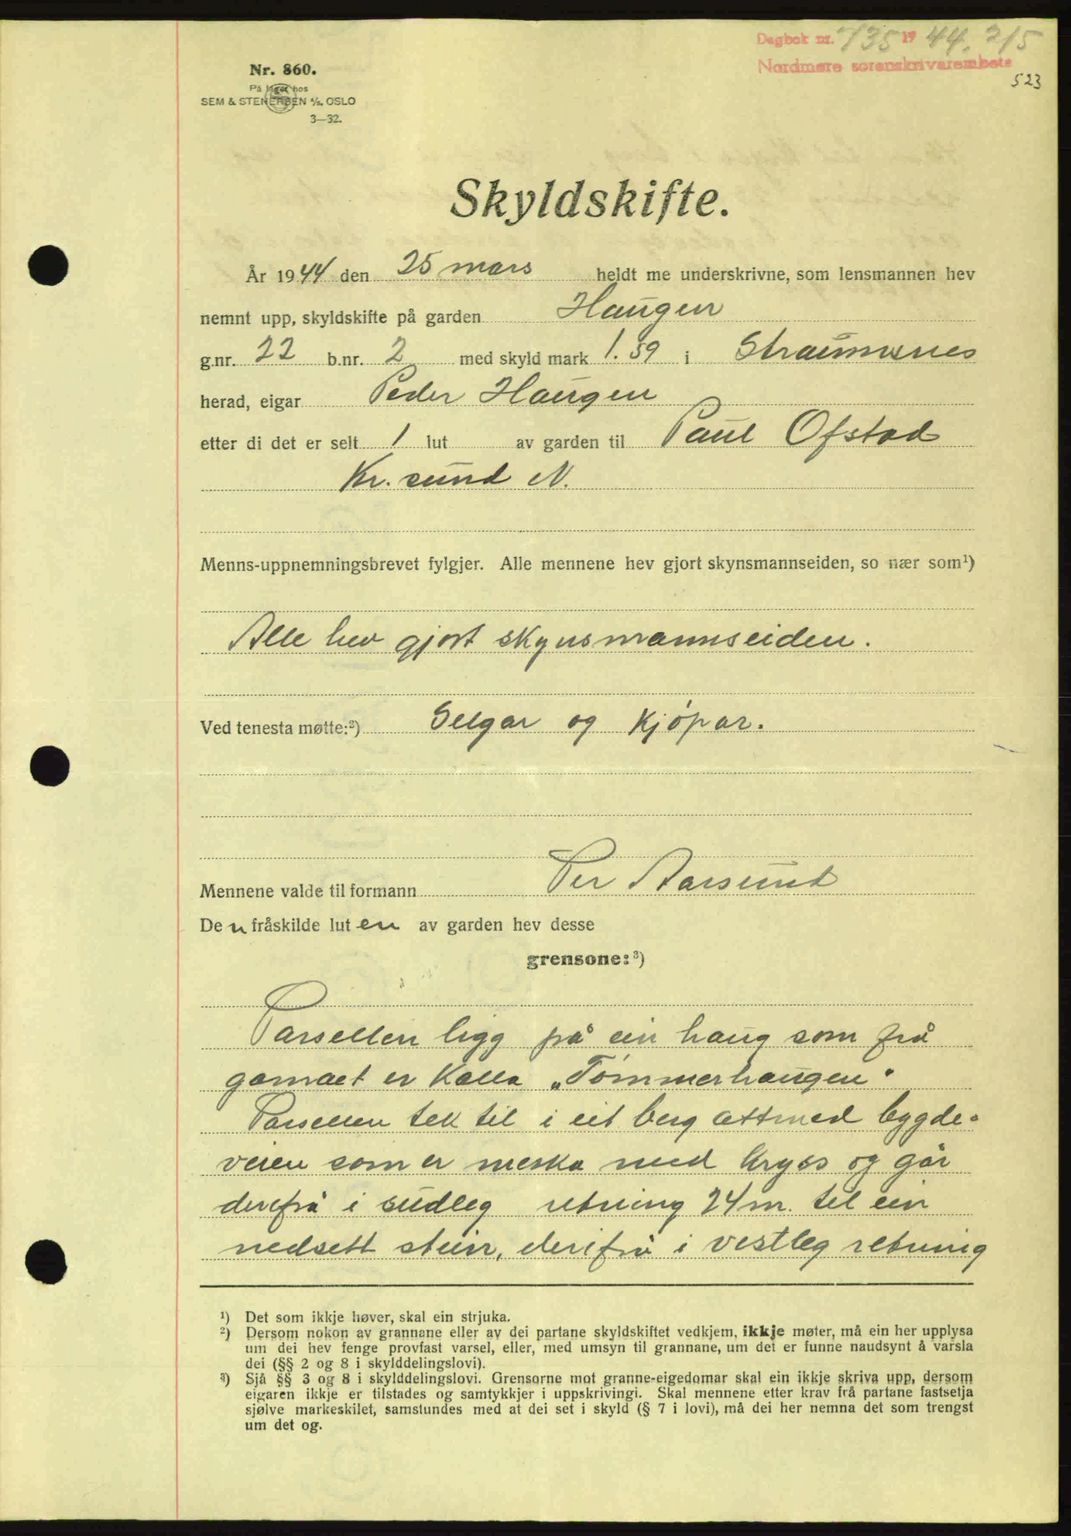 Dagbok nr. 735 1944. 2/5
Nordmøre sorenskrivarembete
523
Nr. 860.
På lager hos
SEM & STENERSEN A/S, OSLO
3—32.
Skyldskifte.
År 1944 den 25 mars heldt me underskrivne, som lensmannen hev
nemnt upp, skyldskifte på garden Haugen
g.nr. 22 b.nr. 2 med skyld mark 1.59 i Straumsnes
herad, eigar Peder Haugen
etter di det er selt 1 lut av garden til Paul Ofstad
Kr.sund N.
Menns-uppnemningsbrevet fylgjer. Alle mennene hev gjort skynsmannseiden, so nær som¹)
Alle hev gjort skynsmannseiden.
Ved tenesta møtte:²) Selgar og Kjöpar.
Mennene valde til formann Per Aarsund
Den fråskilde luten av garden hev desse
grensone:³)
Parsellen ligg på ein haug som frå
gamaet er Kalla „Tømmerhaugen"
Parsellen tek til i eit berg attmed bygde-
veien som er merka med kryss og går
derifrå i sudleg retning 24 m. til ein
nedsett stein, derifrå i vestleg retning
¹) Det som ikkje høver, skal ein strjuka.
²) Dersom nokon av grannane eller av dei partane skyldskiftet vedkjem, ikkje møter, må ein her upplysa
um dei hev fenge provfast varsel, eller, med umsyn til grannane, um det er funne naudsynt å varsla
dei (§§ 2 og 8 i skylddelingslovi).
³) Sjå §§ 3 og 8 i skylddelingslovi. Grensorne mot granne-eigedomar skal ein ikkje skriva upp, dersom
eigaren ikkje er tilstades og samtykkjer i uppskrivingi. Skal mennene etter krav frå partane fastsetja
sjølve markeskilet, samstundes med at dei set i skyld (§ 7 i lovi), må dei her nemna det som trengst
um det og.